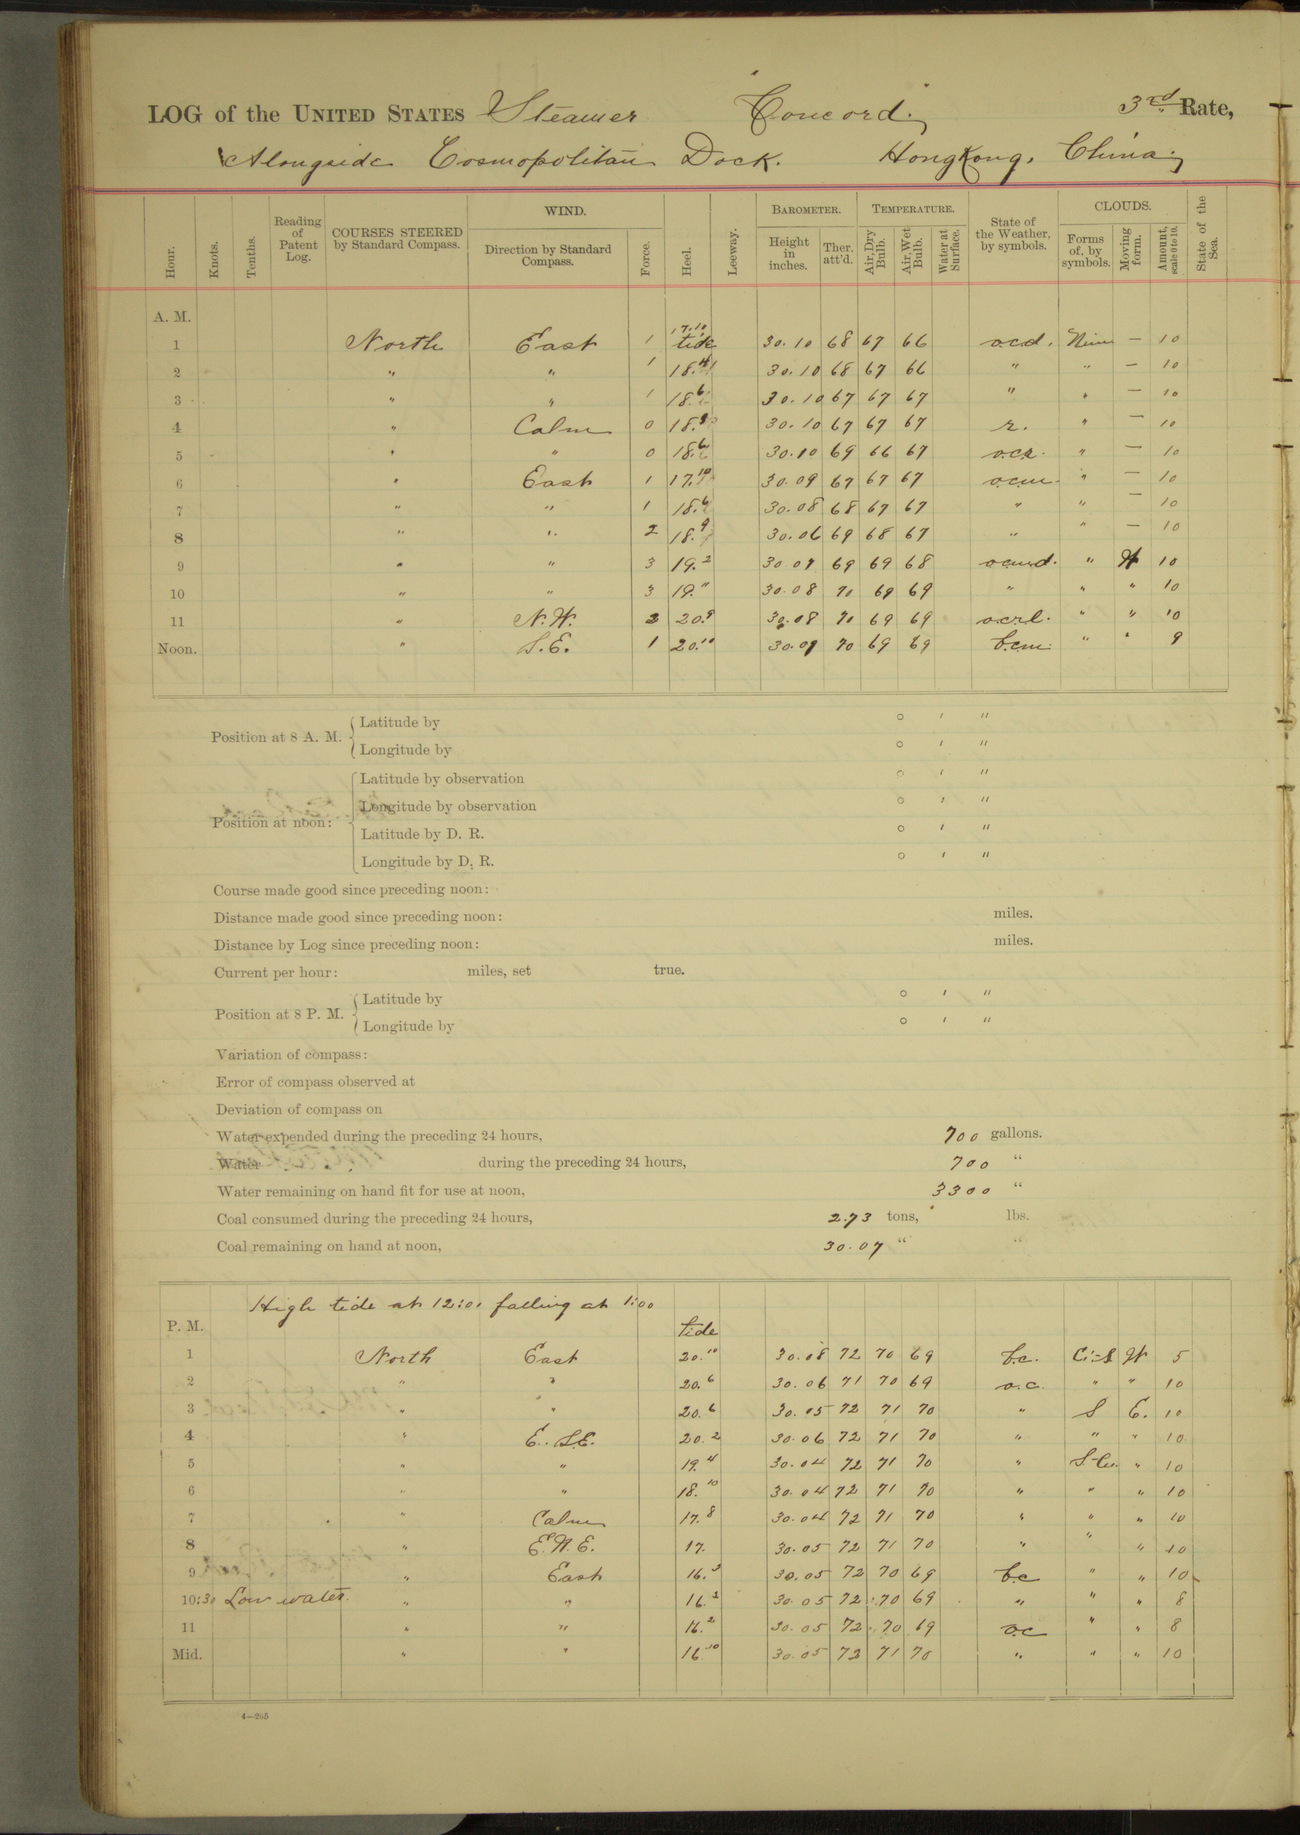 LOG of the UNITED STATES Steamer "Concord", 3rd Rate,
Alongside Cosmopolitan Dock. Hong Kong, China,
Hour. Knots. Tenths. Reading of Patent Log. COURSES STEERED by Standard Compass. WIND. Direction by Standard Compass. Force. Heel. Leeway. BAROMETER. Height in inches. Ther. att'd. TEMPERATURE. Air, Dry Bulb. Air, Wet Bulb. Water at Surface. State of the Weather, by symbols. CLOUDS. Forms of, by symbols. Moving form. Amount, scale 0 to 10. State of the Sea.
A. M. 17.10
1 North East 1 tide 30.10 68 67 66 o.c.d. Nim — 10
2 " " 1 18.4 30.10 68 67 66 " " — 10
3 " " 1 18.6 30.10 67 67 67 " " — 10
4 " Calm 0 18.9 30.10 67 67 67 r. " — 10
5 " " 0 18.6 30.10 69 66 67 o.c.r. " — 10
6 " East 1 17.10 30.09 67 67 67 o.c.m. " — 10
7 " " 1 18.6 30.08 68 67 67 " " — 10
8 " " 2 18.9 30.06 69 68 67 " " — 10
9 " " 3 19.2 30.07 69 69 68 o.c.m.d. " W 10
10 " " 3 19.11 30.08 70 69 69 " " " 10
11 " N.W. 2 20.9 30.08 70 69 69 o.c.r.l. " " 10
Noon. " S.E. 1 20.10 30.09 70 69 69 b.c.m. " " 9
Position at 8 A. M. Latitude by ° ′ ″
Longitude by ° ′ ″
Position at noon: Latitude by observation ° ′ ″
Longitude by observation ° ′ ″
Latitude by D. R. ° ′ ″
Longitude by D. R. ° ′ ″
Course made good since preceding noon:
Distance made good since preceding noon: miles.
Distance by Log since preceding noon: miles.
Current per hour: miles, set true.
Position at 8 P. M. Latitude by ° ′ ″
Longitude by ° ′ ″
Variation of compass:
Error of compass observed at
Deviation of compass on
Water expended during the preceding 24 hours, 700 gallons.
Water during the preceding 24 hours, 700 "
Water remaining on hand fit for use at noon, 3300 "
Coal consumed during the preceding 24 hours, 2.73 tons, lbs.
Coal remaining on hand at noon, 30.07 " "
High tide at 12:01 falling at 1:00
P. M. tide
1 North East 20.10 30.08 72 70 69 b.c. Ci-S W 5
2 " " 20.6 30.06 71 70 69 o.c. " " 10
3 " " 20.6 30.05 72 71 70 " S E. 10
4 " E. S.E. 20.2 30.06 72 71 70 " " " 10
5 " " 19.4 30.04 72 71 70 " S-Cu. " 10
6 " " 18.10 30.04 72 71 70 " " " 10
7 " Calm 17.8 30.04 72 71 70 " " " 10
8 " E.N.E. 17. 30.05 72 71 70 " " " 10
9 " East 16.3 30.05 72 70 69 b.c " " 10
10:30 Low water. " " 16.2 30.05 72 70 69 " " " 8
11 " " 16.2 30.05 72 70 69 o.c " " 8
Mid. " " 16.10 30.05 72 71 70 " " " 10
4—265